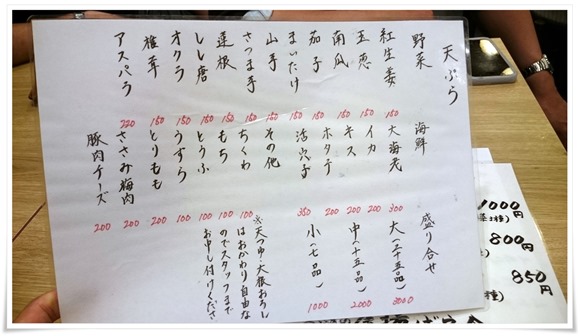 天ぷら
野菜
紅生姜 150
玉葱 150
南瓜 150
茄子 150
まいたけ 150
山芋 150
さつま芋 150
蓮根 150
しし唐 150
オクラ 150
椎茸 150
アスパラ 220
海鮮
大海老 300
イカ 200
キス 200
ホタテ 200
活穴子 350
その他
ちくわ 100
もち 100
とうふ 100
うずら 100
とりもも 200
ささみ梅肉 200
豚肉チーズ 200
盛り合せ
大(二十五品) 3000
中(十五品) 2000
小(七品) 1000
※天つゆ・大根おろし
はおかわり自由な
のでスタッフまで
お申し付けくださ
1000円
800円
850円
種)